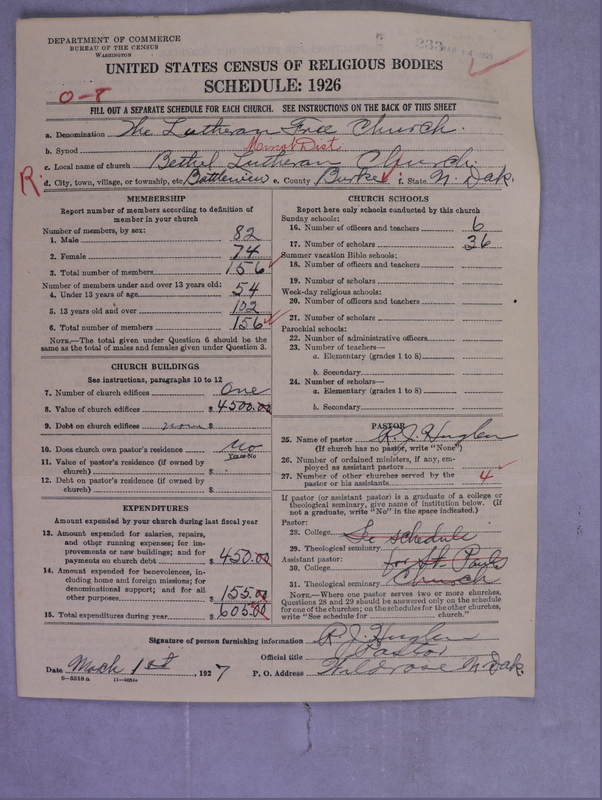 DEPARTMENT OF COMMERCE
BUREAU OF THE CENSUS
WASHINGTON
UNITED STATES CENSUS OF RELIGIOUS BODIES
SCHEDULE: 1926
0-8
FILL OUT A SEPARATE SCHEDULE FOR EACH CHURCH. SEE INSTRUCTIONS ON THE BACK OF THIS SHEET
a. Denomination The Lutheran Free Church.
b. Synod Dist
c. Local name of church Bethel Lutheran Church.
R. d. City, town, village, or township, etc. Battleview e. County Burke f. State N. Dak.
MEMBERSHIP
Report number of members according to definition of
member in your church
Number of members, by sex:
1. Male 82
2. Female 74
3. Total number of members 156
Number of members under and over 13 years old:
4. Under 13 years of age 54
5. 13 years old and over 102
6. Total number of members 156
NOTE.—The total given under Question 6 should be the
same as the total of males and females given under Question 3.
CHURCH BUILDINGS
See instructions, paragraphs 10 to 12
7. Number of church edifices One
8. Value of church edifices $ 4500.00
9. Debt on church edifices none $
10. Does church own pastor's residence No
Yes or No
11. Value of pastor's residence (if owned by
church) $
12. Debt on pastor's residence (if owned by
church) $
EXPENDITURES
Amount expended by your church during last fiscal year
13. Amount expended for salaries, repairs,
and other running expenses; for im-
provements or new buildings; and for
payments on church debt $ 450.00
14. Amount expended for benevolences, in-
cluding home and foreign missions; for
denominational support; and for all
other purposes $ 155.00
15. Total expenditures during year $ 605.00
CHURCH SCHOOLS
Report here only schools conducted by this church
Sunday schools:
16. Number of officers and teachers 6
17. Number of scholars 36
Summer vacation Bible schools:
18. Number of officers and teachers
19. Number of scholars
Week-day religious schools:
20. Number of officers and teachers
21. Number of scholars
Parochial schools:
22. Number of administrative officers
23. Number of teachers—
a. Elementary (grades 1 to 8)
b. Secondary
24. Number of scholars—
a. Elementary (grades 1 to 8)
b. Secondary
PASTOR
25. Name of pastor R. J. Huglen
(If church has no pastor, write "None")
26. Number of ordained ministers, if any, em-
ployed as assistant pastors
27. Number of other churches served by the
pastor or his assistants 4
If pastor (or assistant pastor) is a graduate of a college or
theological seminary, give name of institution below. (If
not a graduate, write "No" in the space indicated.)
Pastor:
28. College See schedule
29. Theological seminary
Assistant pastor: for St. Pauls
30. College
31. Theological seminary Church
NOTE.—Where one pastor serves two or more churches,
Questions 28 and 29 should be answered only on the schedule
for one of the churches; on the schedules for the other churches,
write "See schedule for church."
Signature of person furnishing information R. J. Huglen
Official title Pastor
Date March 1st, 1927 P. O. Address Wildrose N. Dak.
8-5518a